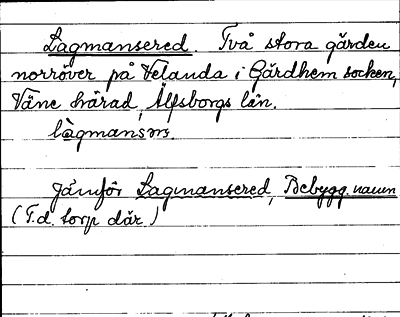 Lagmansered. Två stora gården
norröver på Velanda i Gärdhem socken,
Väne härad, Älfsborgs län.
Jämför Lagmansered, Bebygg. namn
(T.d. torp där)